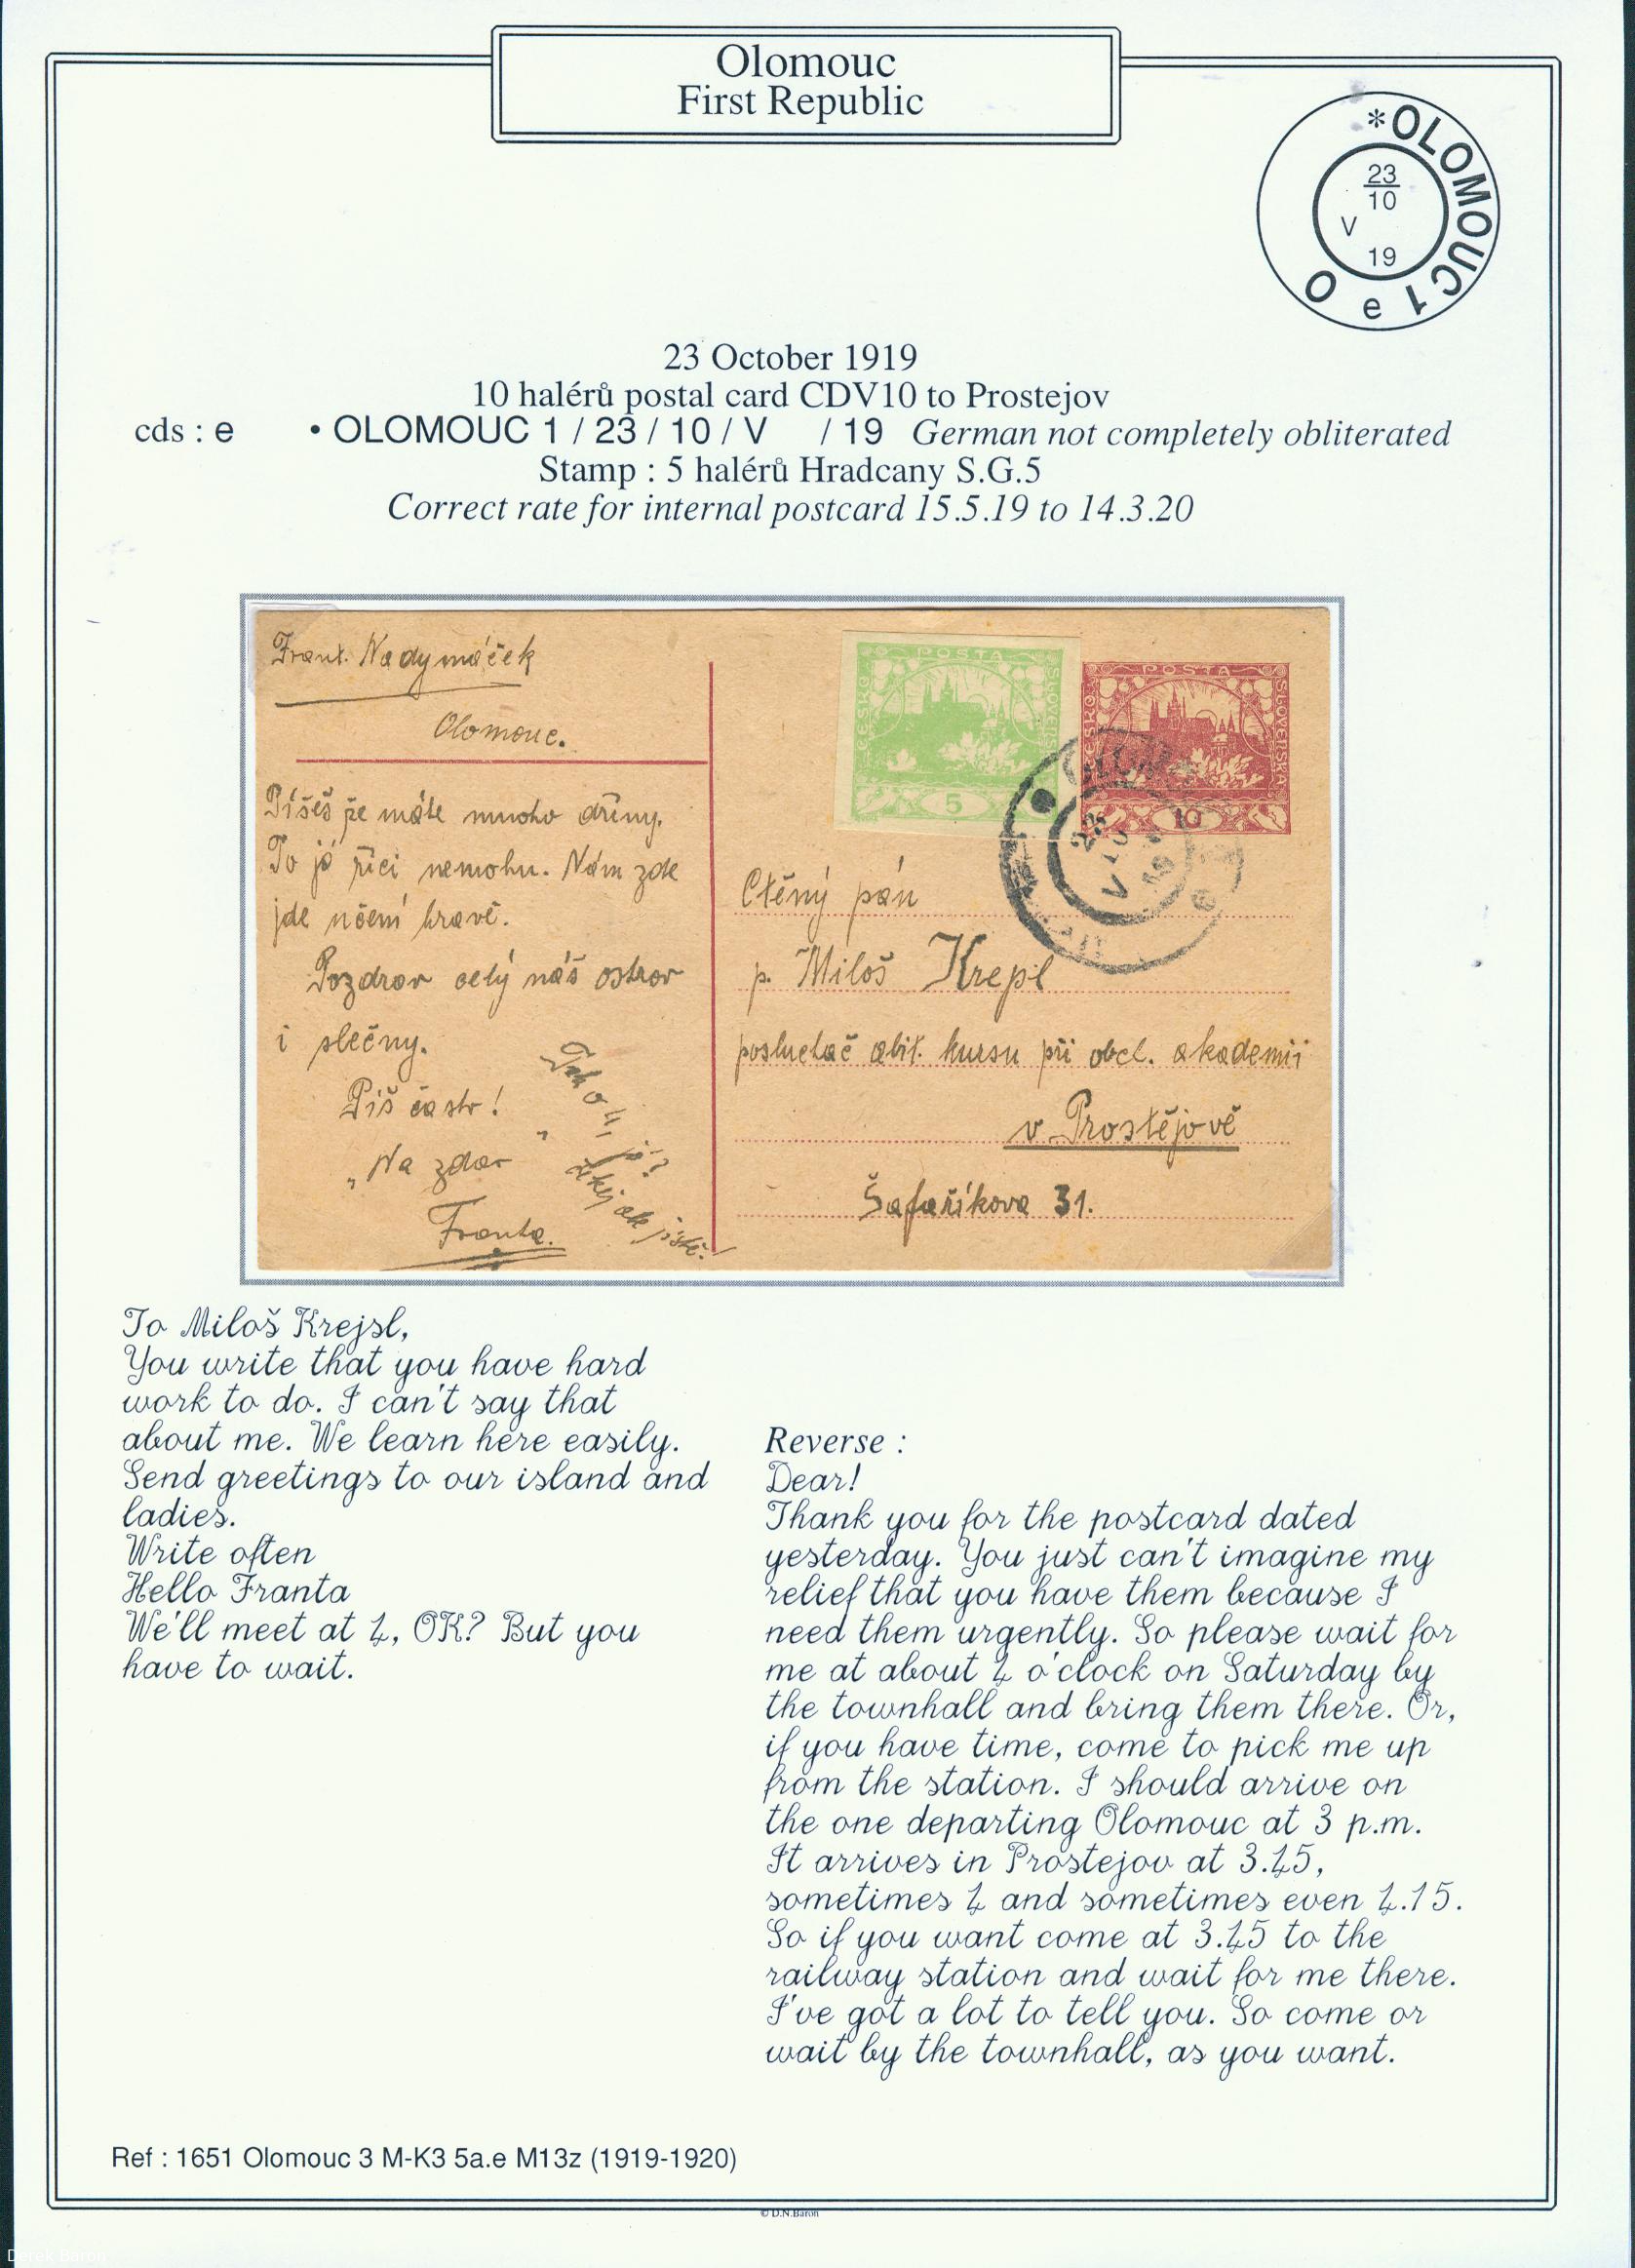 Olomouc
First Republic
*OLOMOUC 1 e O
23
10
V
19
23 October 1919
10 halérů postal card CDV10 to Prostejov
cds : e • OLOMOUC 1 / 23 / 10 / V / 19 German not completely obliterated
Stamp : 5 halérů Hradcany S.G.5
Correct rate for internal postcard 15.5.19 to 14.3.20
Frant. Nadymáček
Olomouc.
Píšeš že máte mnoho dřiny.
To já říci nemohu. Nám zde
jde učení hravě.
Pozdrav celý náš ostrov
i slečny.
Piš často!
„Na zdar"
Franta.
Tak o 4, jo?
čekej ale jistě!
POSTA
ČESKO
SLOVENSKÁ
5
POSTA
ČESKO
SLOVENSKÁ
10
V
19
e
Ctěný pán
p. Miloš Krepl
posluchač abit. kursu při obch. akademii
v Prostějově
Šafaříkova 31.
To Miloš Krejsl,
You write that you have hard
work to do. I can't say that
about me. We learn here easily.
Send greetings to our island and
ladies.
Write often
Hello Franta
We'll meet at 4, OK? But you
have to wait.
Reverse :
Dear!
Thank you for the postcard dated
yesterday. You just can't imagine my
relief that you have them because I
need them urgently. So please wait for
me at about 4 o'clock on Saturday by
the townhall and bring them there. Or,
if you have time, come to pick me up
from the station. I should arrive on
the one departing Olomouc at 3 p.m.
It arrives in Prostejov at 3.45,
sometimes 4 and sometimes even 4.15.
So if you want come at 3.45 to the
railway station and wait for me there.
I've got a lot to tell you. So come or
wait by the townhall, as you want.
Ref : 1651 Olomouc 3 M-K3 5a.e M13z (1919-1920)
© D.N.Baron
Derek Baron